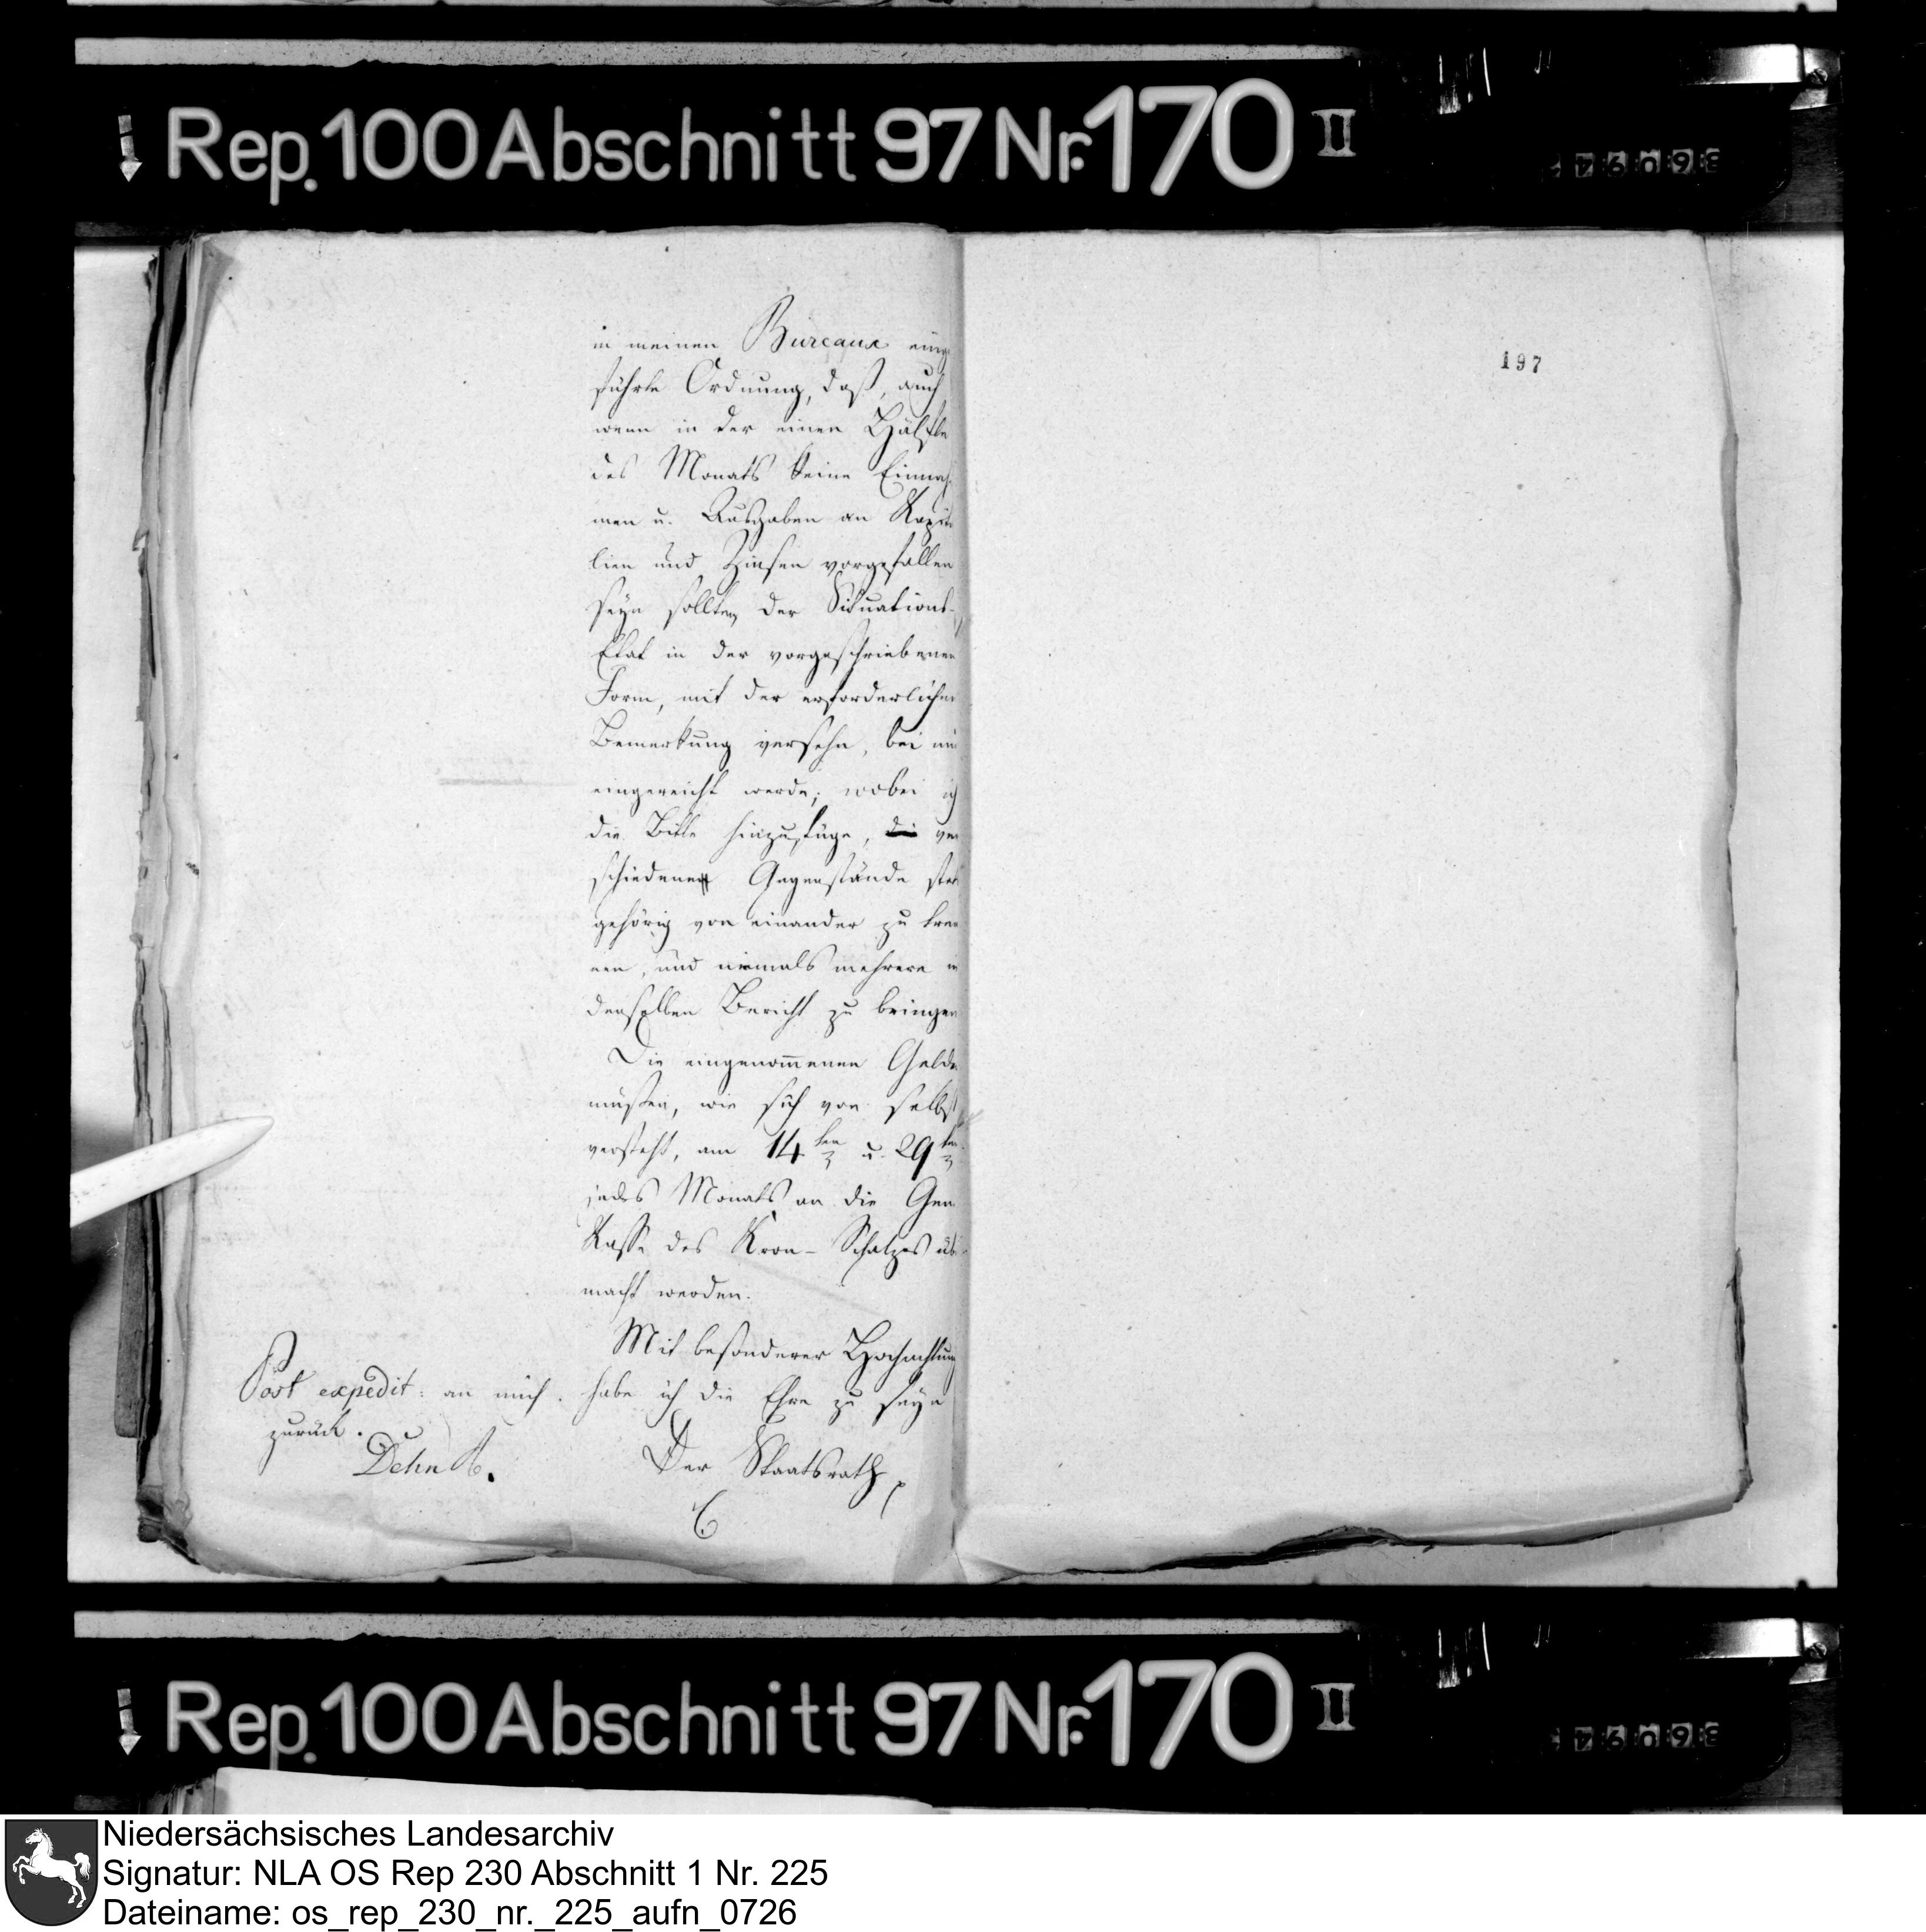 Rep. 100 Abschnitt 97 Nr. 170 II
in meinen Bureaux einge
führte Ordnung, daß, auch
wenn in der einen Hälfte
des Monats keine Einnah
men u. Ausgaben an Kapita
lien und Zinsen vorgefallen
seyn sollten, der Situations-
Etat in der vorgeschriebenen
Form, mit der erforderlichen
Bemerkung versehn, bei mir
eingereicht werde; wobei ich
die Bitte hinzufüge, die ver
schiedenen Gegenstände stets
gehörig von einander zu tren
nen, und niemals mehrere in
denselben Bericht zu bringen
Die eingenom̅enen Gelder
müßen, wie sich von selbst
versteht, am 14ten u. 29ten
jedes Monats an die Gen.
Kasse des Kron-Schatzes über
macht werden.
Mit besonderer Hochachtung
habe ich die Ehre zu seyn
Der Staatsrath,
Post expedit: an mich
zurück.
Dehn
197
Rep. 100 Abschnitt 97 Nr. 170 II
Niedersächsisches Landesarchiv
Signatur: NLA OS Rep 230 Abschnitt 1 Nr. 225
Dateiname: os_rep_230_nr._225_aufn_0726